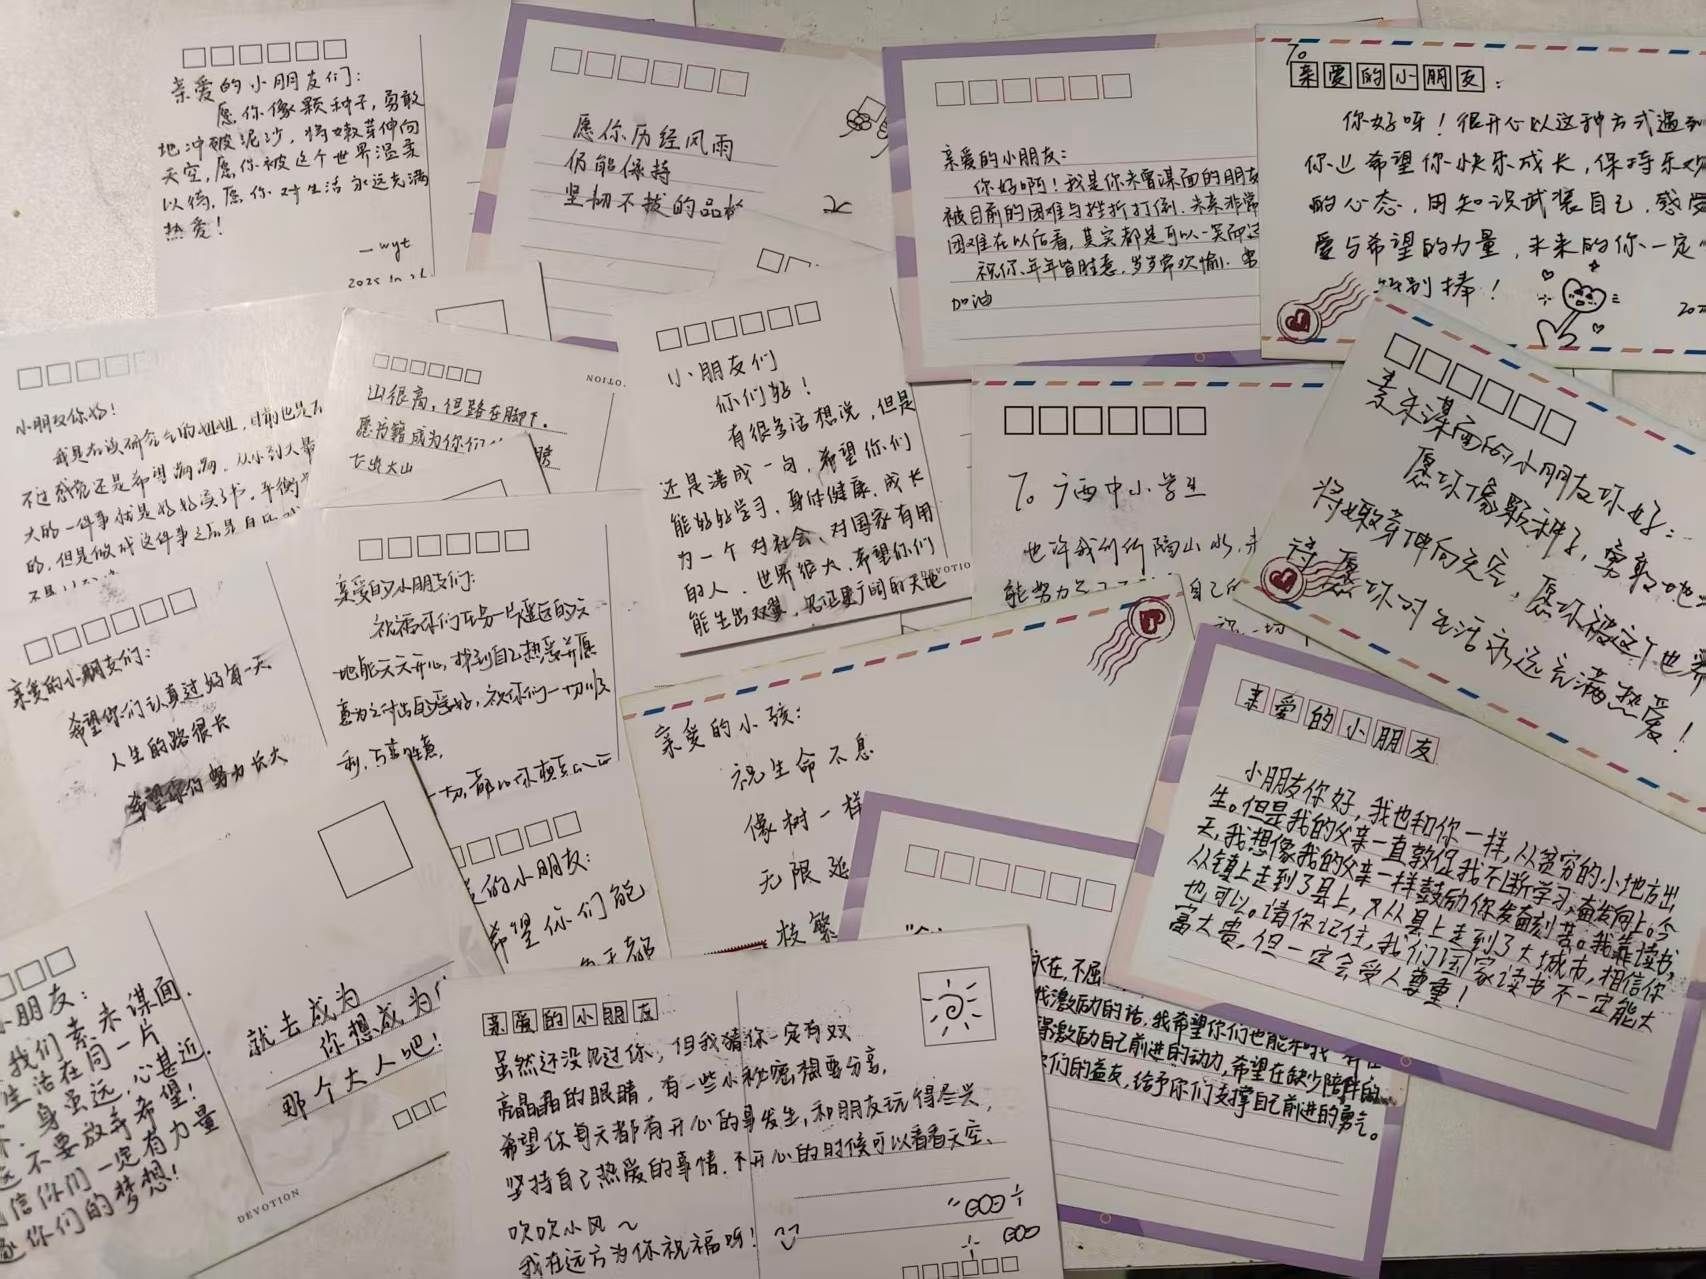 亲爱的小朋友们:
愿你像颗种子,勇敢
地冲破泥沙,将嫩芽伸向
天空,愿你被这个世界温柔
以待,愿你对生活永远充满
热爱!
—wyt
愿你历经风雨
仍能保持
坚韧不拔的品
亲爱的小朋友:
你好啊!我是你未曾谋面的朋友
被目前的困难与挫折打倒.未来非常
困难在以后看,其实都是可以一笑而过
祝你、年年皆胜意,岁岁常欢愉.
加油
To
亲爱的小朋友:
你好呀!很开心以这种方式遇到
你也希望你快乐成长,保持乐观
的心态,用知识武装自己,感受
爱与希望的力量,未来的你一定
特别棒!
小朋友你好!
我是在读研究生的姐姐,目前也是
不过感觉还是希望 从小到大最
大的一件事就是好好读了书,平衡
的,但是做成这件事之后是自
山很高,但路在脚下.
愿书籍成为你们
飞出大山
小朋友们
你们好!
有很多话想说,但是
还是凑成一句,希望你们
能好好学习,身体健康,成长
为一个对社会、对国家有用
的人.世界很大,希望你们
能生出双翼,见证更广阔的天地
DEVOTIO
To 广西中小学生
也许我们所隔山水,
能努力
自己的
祝一切
素未谋面的小朋友你好:
愿你像颗种子,勇敢地
将嫩芽伸向天空,愿你被这个世界
待,愿你对生活永远充满热爱!
亲爱的小朋友们:
希望你们认真过好每一天
人生的路很长
希望你们努力长大
亲爱的小朋友们:
祝福你们在另一片遥远的天
地能天天开心,找到自己热爱并愿
意为之付出的爱好,祝你们一切顺
利,万事胜意.
一切都
亲爱的小孩:
祝生命不息
像树一样
无限延
枝繁
亲爱的小朋友
小朋友你好,我也和你一样,从贫穷的小地方出
生。但是我的父亲一直敦促我不断学习,奋发向上。今
天,我想像我的父亲一样鼓励你发奋刻苦。我靠读书,
从镇上走到了县上,又从县上走到了大城市,相信你
也可以。请你记住,我们国家读书不一定能大
富大贵,但一定会受人尊重!
的小朋友:
希望你们能
小朋友:
我们素未谋面.
生活在同一片
身虽远,心甚近.
不要放弃希望!
信你们一定有力量
你们的梦想!
就去成为
你想成为
那个大人吧!
DEVOTION
亲爱的小朋友
虽然还没见过你,但我猜你一定有双
亮晶晶的眼睛,有一些小秘密想要分享,
希望你每天都有开心的事发生,和朋友玩得尽兴,
坚持自己热爱的事情.不开心的时候可以看看天空、
吹吹小风~
我在远方为你祝福呀!
永在,不屈
我激励的话,我希望你们也能
得激励自己前进的动力,希望在缺少陪伴的
你们的益友,给予你们支撑自己前进的勇气。